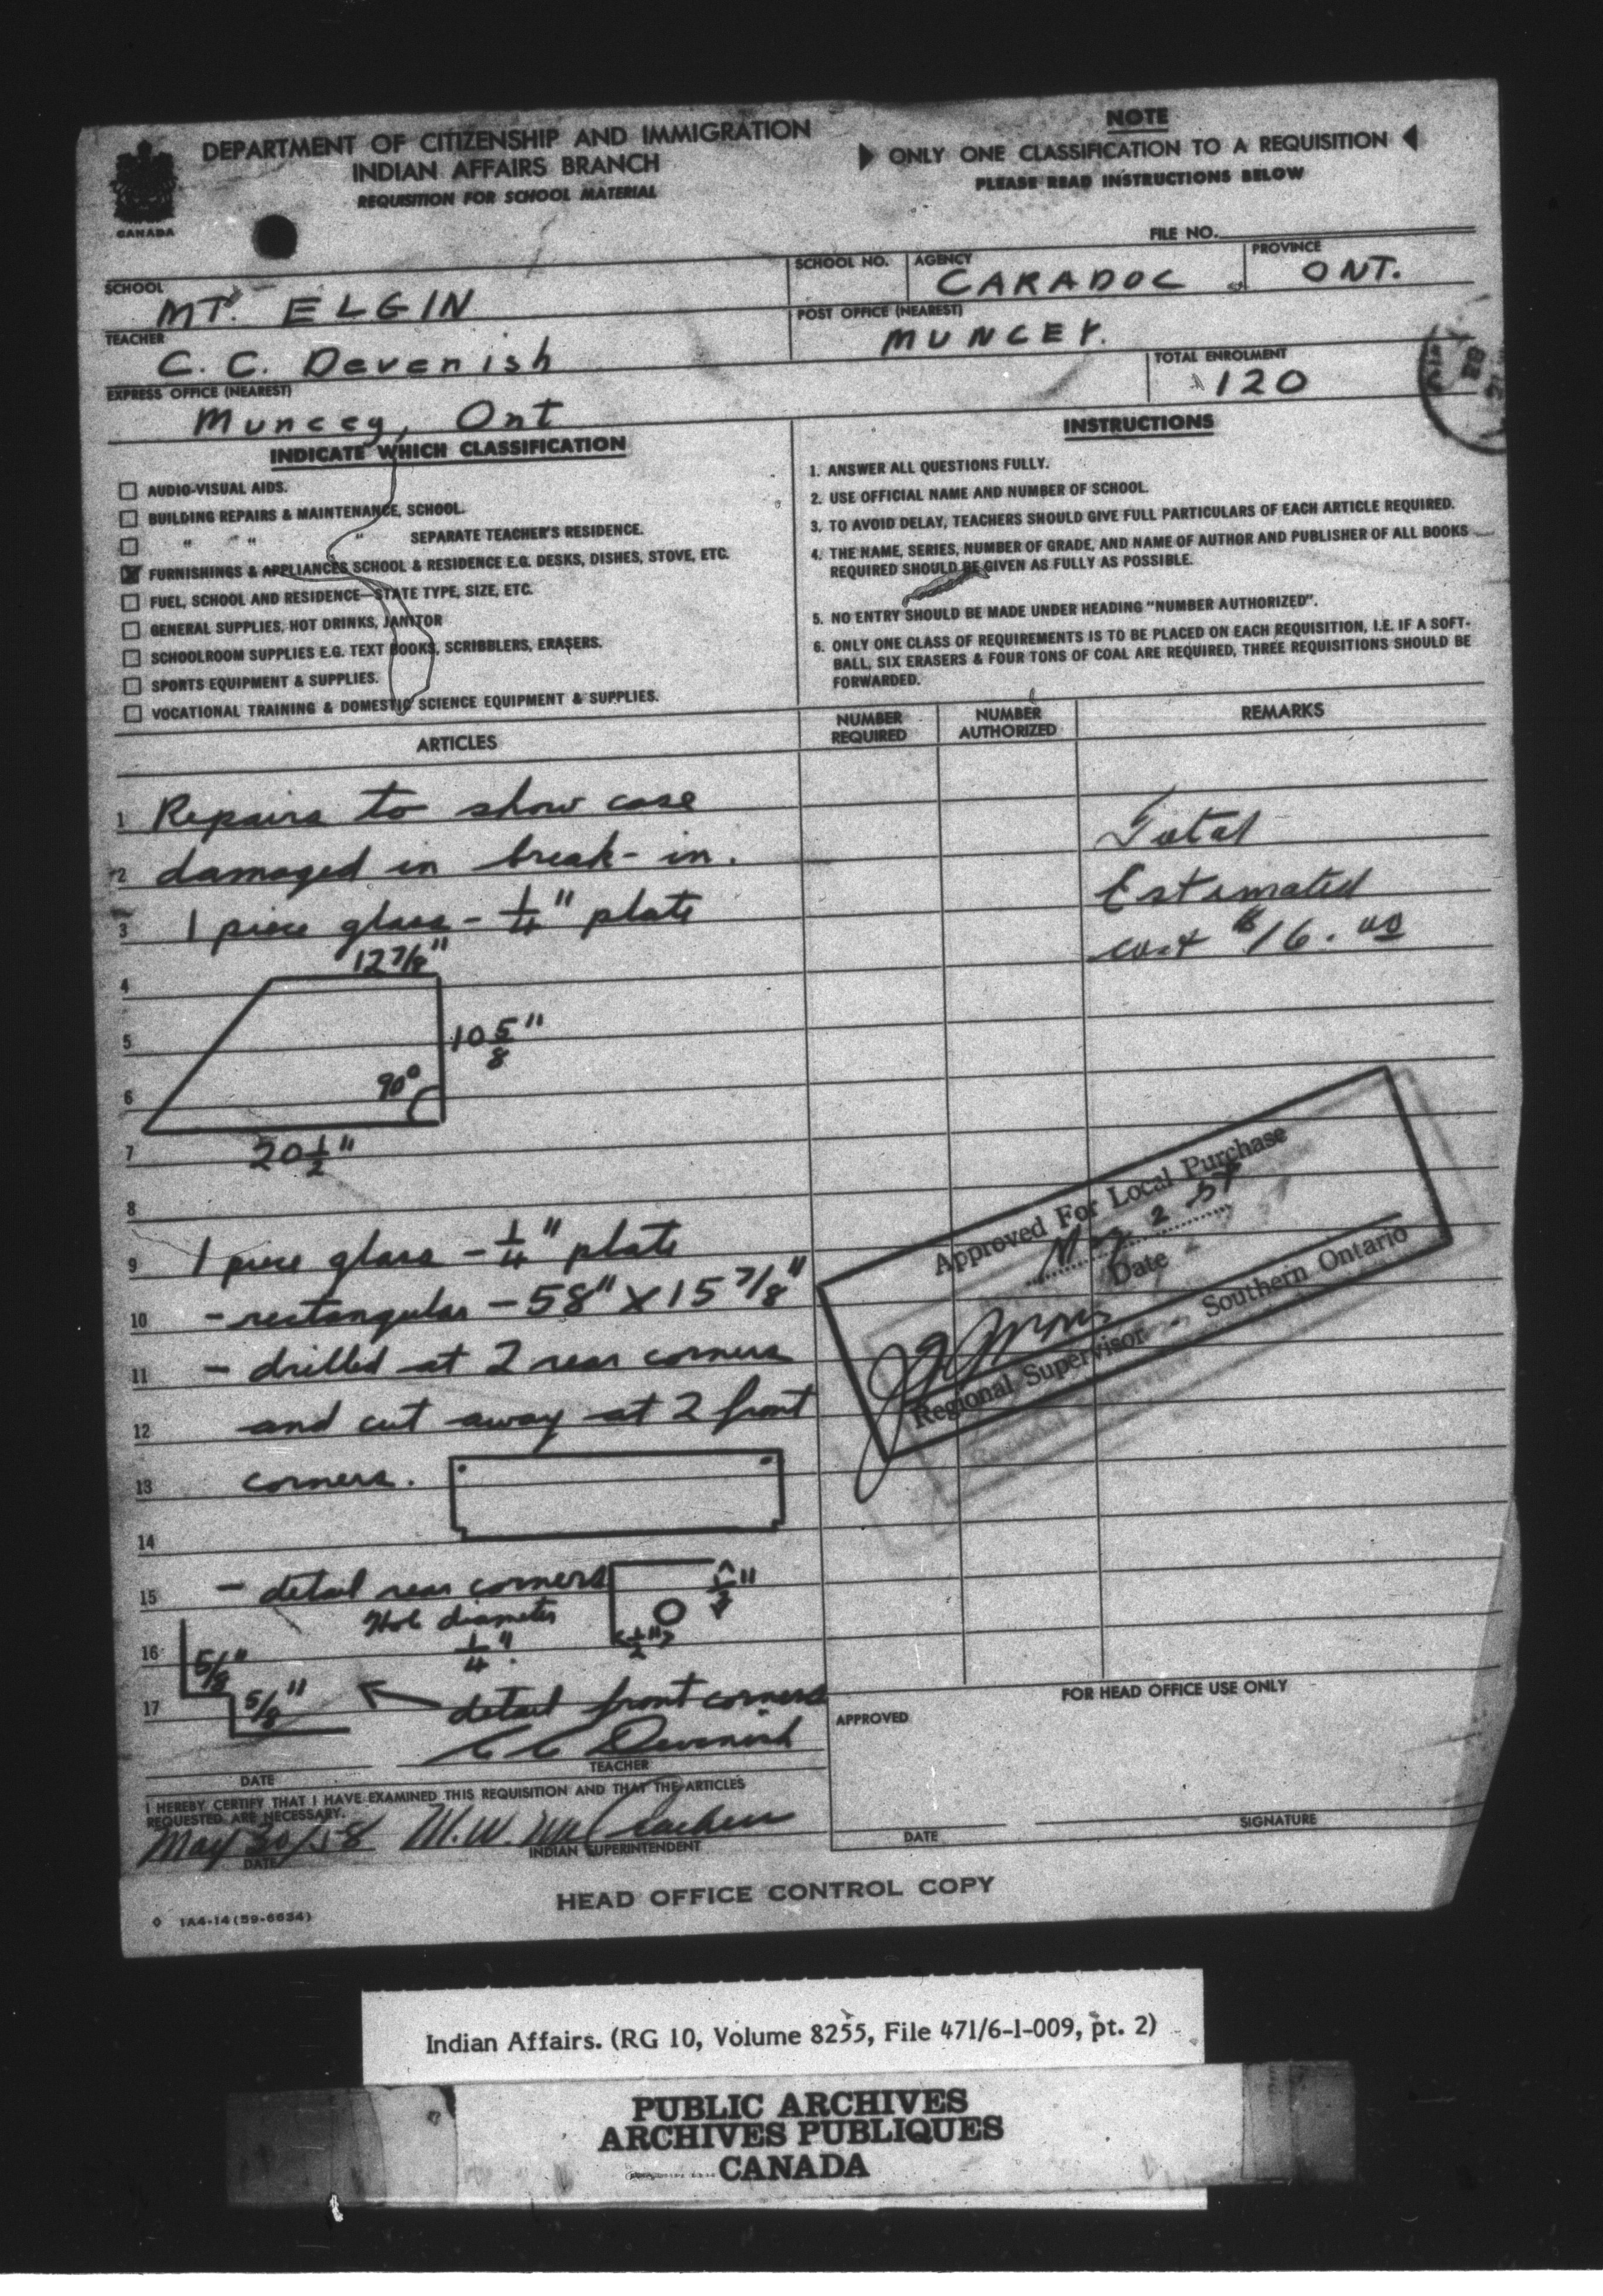 DEPARTMENT OF CITIZENSHIP AND IMMIGRATION
INDIAN AFFAIRS BRANCH
REQUISITION FOR SCHOOL MATERIAL
CANADA
NOTE
ONLY ONE CLASSIFICATION TO A REQUISITION
PLEASE READ INSTRUCTIONS BELOW
FILE NO.
SCHOOL
MT. ELGIN
SCHOOL NO.
AGENCY
CARADOC
PROVINCE
ONT.
TEACHER
C. C. Devenish
POST OFFICE (NEAREST)
MUNCEY.
EXPRESS OFFICE (NEAREST)
Muncey, Ont
TOTAL ENROLMENT
120
INDICATE WHICH CLASSIFICATION
AUDIO-VISUAL AIDS.
BUILDING REPAIRS & MAINTENANCE, SCHOOL.
" " " " SEPARATE TEACHER'S RESIDENCE.
FURNISHINGS & APPLIANCES SCHOOL & RESIDENCE E.G. DESKS, DISHES, STOVE, ETC.
FUEL, SCHOOL AND RESIDENCE—STATE TYPE, SIZE, ETC.
GENERAL SUPPLIES, HOT DRINKS, JANITOR
SCHOOLROOM SUPPLIES E.G. TEXT BOOKS, SCRIBBLERS, ERASERS.
SPORTS EQUIPMENT & SUPPLIES.
VOCATIONAL TRAINING & DOMESTIC SCIENCE EQUIPMENT & SUPPLIES.
INSTRUCTIONS
1. ANSWER ALL QUESTIONS FULLY.
2. USE OFFICIAL NAME AND NUMBER OF SCHOOL.
3. TO AVOID DELAY, TEACHERS SHOULD GIVE FULL PARTICULARS OF EACH ARTICLE REQUIRED.
4. THE NAME, SERIES, NUMBER OF GRADE, AND NAME OF AUTHOR AND PUBLISHER OF ALL BOOKS
REQUIRED SHOULD BE GIVEN AS FULLY AS POSSIBLE.
5. NO ENTRY SHOULD BE MADE UNDER HEADING "NUMBER AUTHORIZED".
6. ONLY ONE CLASS OF REQUIREMENTS IS TO BE PLACED ON EACH REQUISITION, I.E. IF A SOFT-
BALL, SIX ERASERS & FOUR TONS OF COAL ARE REQUIRED, THREE REQUISITIONS SHOULD BE
FORWARDED.
ARTICLES
NUMBER
REQUIRED
NUMBER
AUTHORIZED
REMARKS
1 Repairs to show case
2 damaged in break-in.
3 1 piece glass - 1/4" plate
Total
Estimated
cost $16.00
12 7/8"
4
5
10 5/8"
6
90°
7
20 1/2"
8
9 1 piece glass - 1/4" plate
10 - rectangular - 58" X 15 7/8"
11 - drilled at 2 rear corners
12 and cut away at 2 front
13 corners.
14
15 - detail rear corners
1/2"
Hole diameter
16 1/4".
1/2"
5/8"
5/8"
17 detail front corners
Approved For Local Purchase
Date
Regional Supervisor - Southern Ontario
C C Devenish
DATE
TEACHER
I HEREBY CERTIFY THAT I HAVE EXAMINED THIS REQUISITION AND THAT THE ARTICLES
REQUESTED ARE NECESSARY.
May 30/58 M.W. McCracken
DATE
INDIAN SUPERINTENDENT
FOR HEAD OFFICE USE ONLY
APPROVED
DATE
SIGNATURE
HEAD OFFICE CONTROL COPY
1A4-14 (59-6634)
Indian Affairs. (RG 10, Volume 8255, File 471/6-1-009, pt. 2)
PUBLIC ARCHIVES
ARCHIVES PUBLIQUES
CANADA